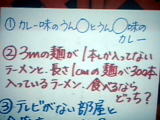 ①カレー味のうん○とうん○味の
カレー
②3mの麺が1本しか入ってない
ラーメンと、長さ1cmの麺が300本
入っているラーメン…食べるなら
どっち?
③テレビがない部屋と